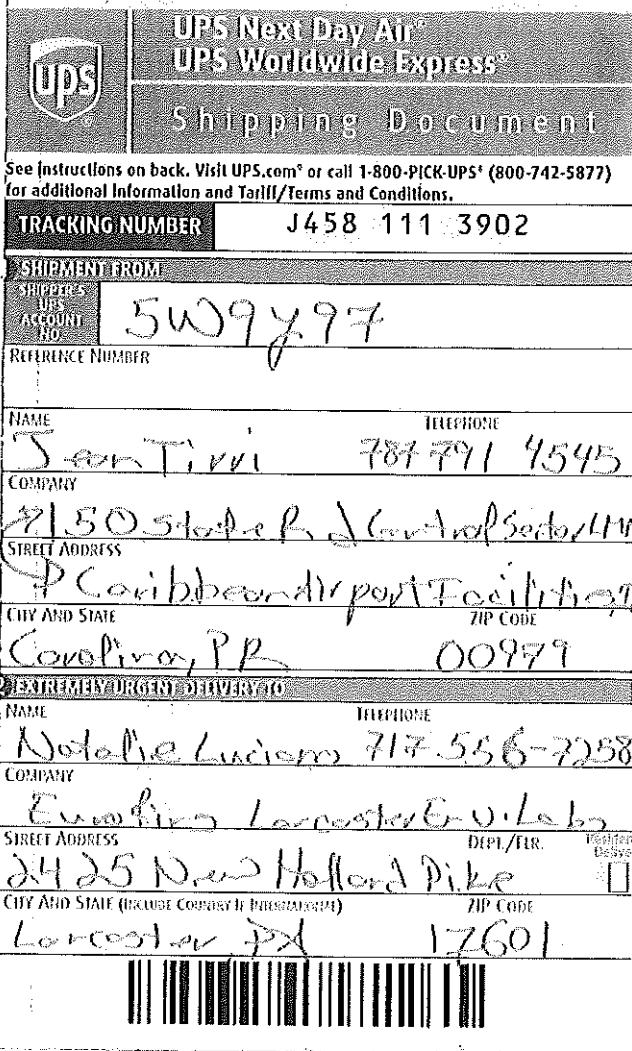 UPS Next Day Air®
UPS Worldwide Express®
ups
Shipping Document
See instructions on back. Visit UPS.com® or call 1-800-PICK-UPS® (800-742-5877)
for additional Information and Tariff/Terms and Conditions.
TRACKING NUMBER J458 111 3902
SHIPMENT FROM
SHIPPER'S
UPS
ACCOUNT
NO.
5W9Y97
REFERENCE NUMBER
NAME TELEPHONE
Jean Tirri 787 791 4545
COMPANY
150 State Rd Central Sector
STREET ADDRESS
Caribbean Airport Facilities
CITY AND STATE ZIP CODE
Carolina, PR 00979
2 EXTREMELY URGENT DELIVERY TO
NAME TELEPHONE
Natalie Luciano 717 556-7258
COMPANY
Eurofins Lancaster Env. Labs
STREET ADDRESS DEPT./FLR.
2425 New Holland Pike
CITY AND STATE (INCLUDE COUNTRY IF INTERNATIONAL) ZIP CODE
Lancaster, PA 17601